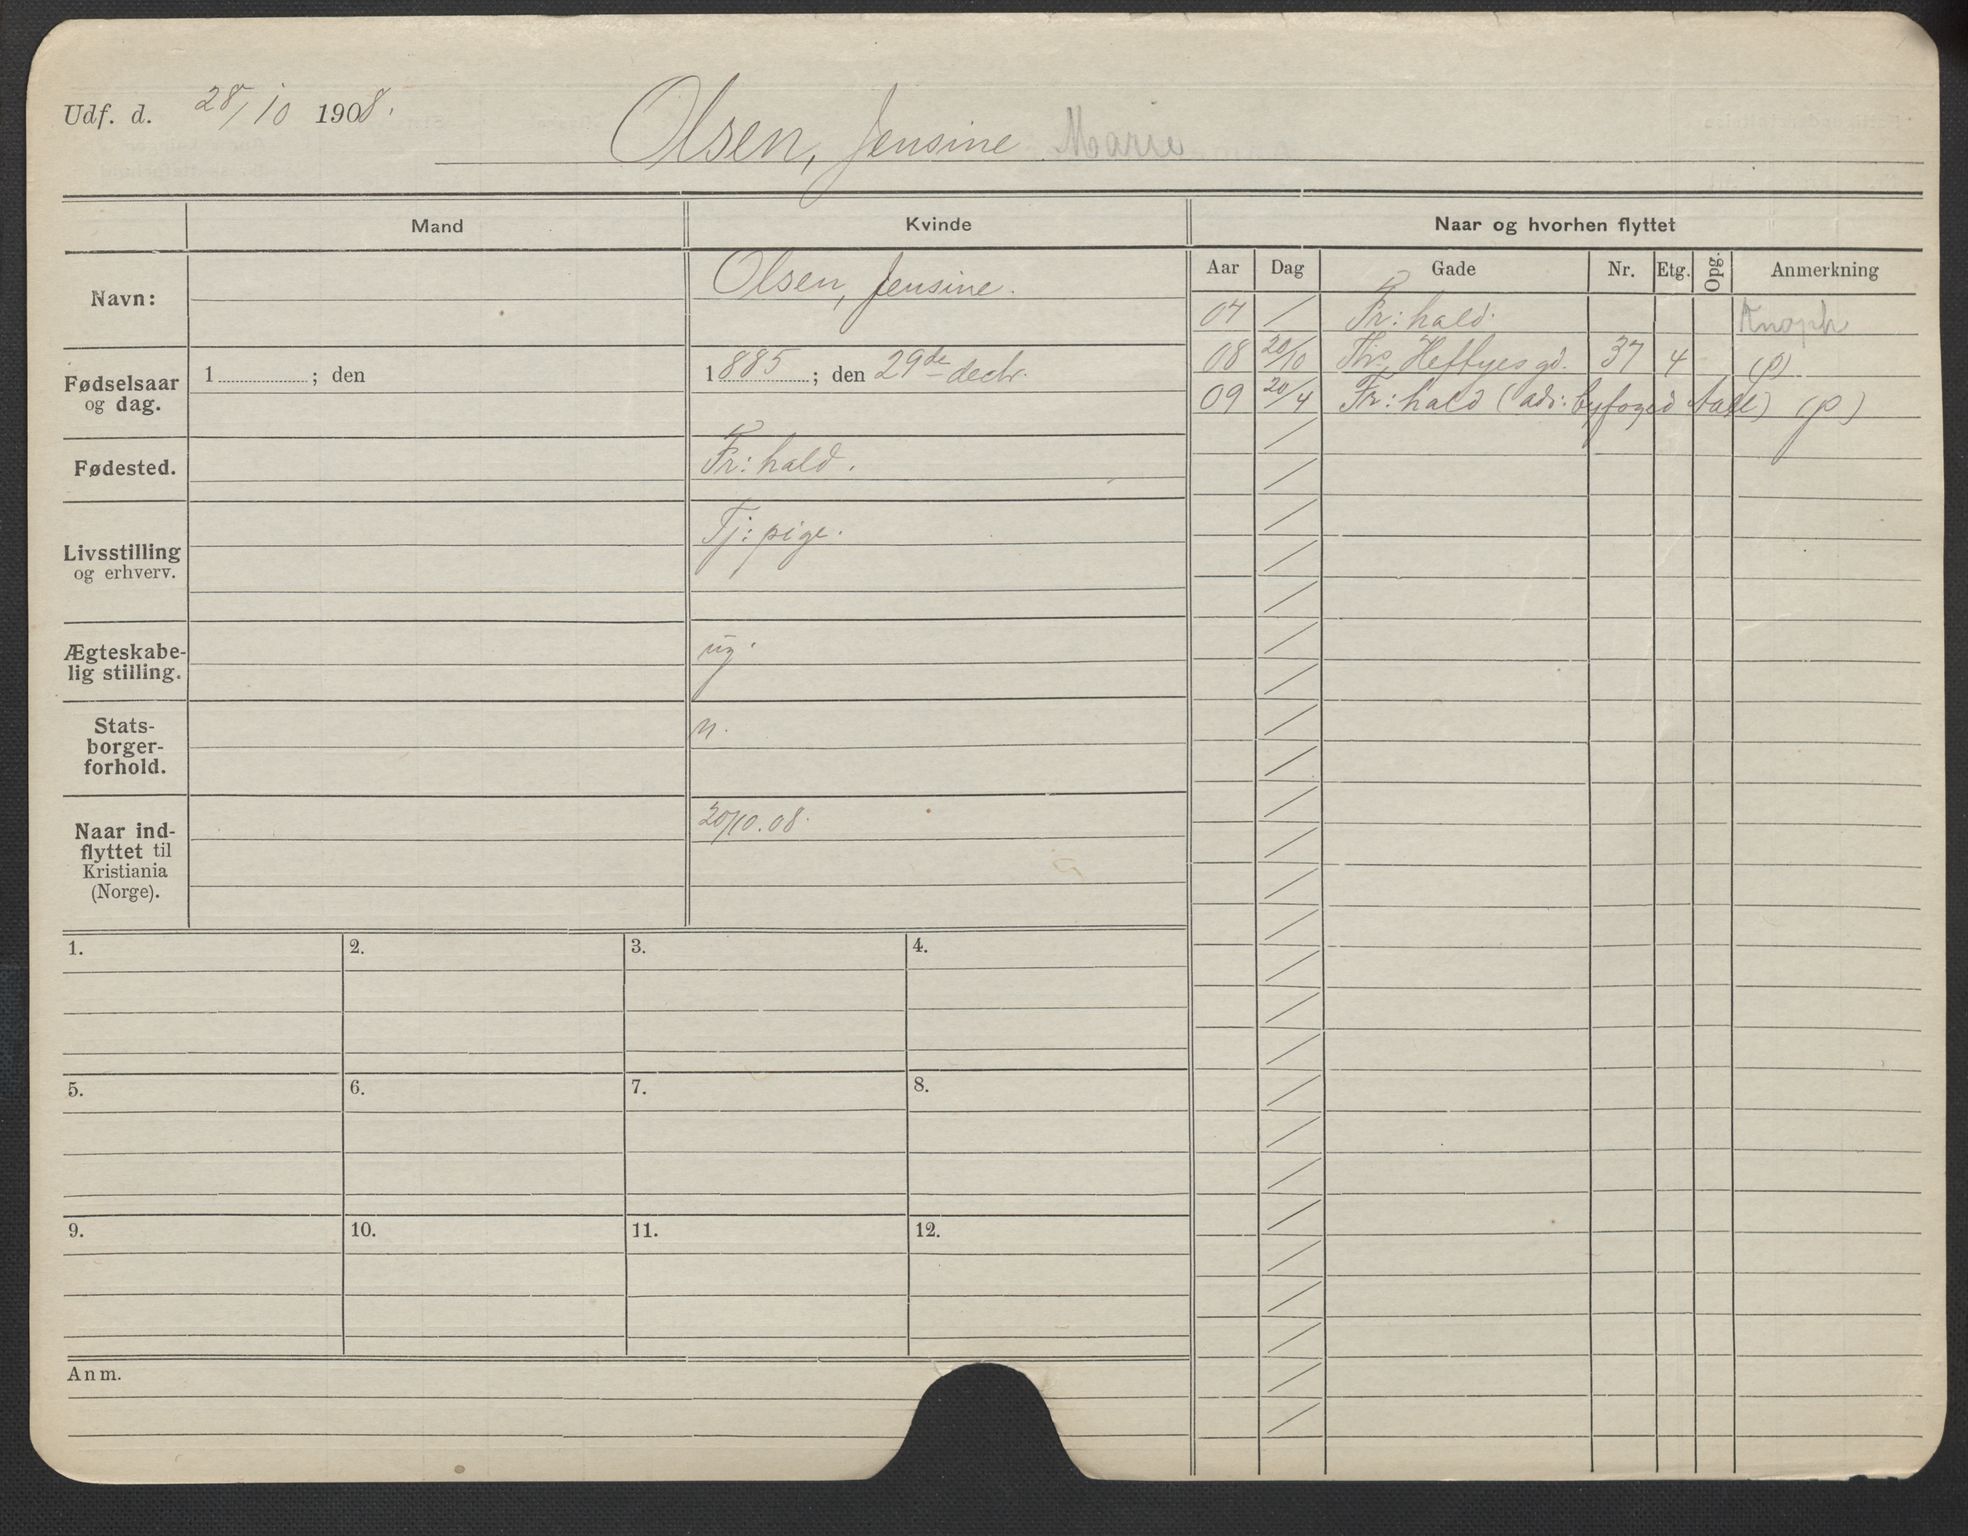 Udf. d. 28/10 1908.
Olsen, Jensine Marie
Mand
Kvinde
Naar og hvorhen flyttet
Navn:
Olsen, Jensine.
Fødselsaar og dag.
1 ; den
1885 ; den 29de decbr.
Fødested.
Fr:hald.
Livsstilling og erhverv.
Tj: pige.
Ægteskabe-
lig stilling.
ug.
Stats-
borger-
forhold.
n.
Naar ind-
flyttet til
Kristiania
(Norge).
20/10.08.
Aar Dag Gade Nr. Etg. Opg. Anmerkning
07 / Fr:hald. Knoph
08 20/10 Ths Heftyes gd. 37 4 (p)
09 20/4 Fr:hald (adr: byfoged Aall) (p)
1. 2. 3. 4.
5. 6. 7. 8.
9. 10. 11. 12.
Anm.